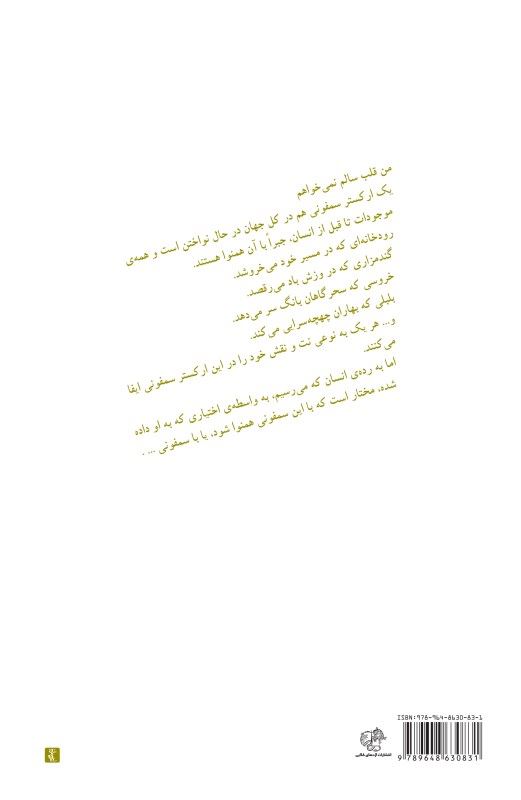 من قلب سالم نمی‌خواهم
یک ارکستر سمفونی هم در کل جهان در حال نواختن است و همه‌ی
موجودات تا قبل از انسان، جبراً با آن همنوا هستند.
رودخانه‌ای که در مسیر خود می‌خروشد.
گندمزاری که در وزش باد می‌رقصد.
خروسی که سحرگاهان بانگ سر می‌دهد.
بلبلی که بهاران چهچه‌سرایی می‌کند.
و... هر یک به نوعی نت و نقش خود را در این ارکستر سمفونی ایفا
می‌کنند.
اما به رده‌ی انسان که می‌رسیم، به واسطه‌ی اختیاری که به او داده
شده، مختار است که با این سمفونی همنوا شود، یا با سمفونی ... .
ISBN:978-964-8630-83-1
9 789648 630831